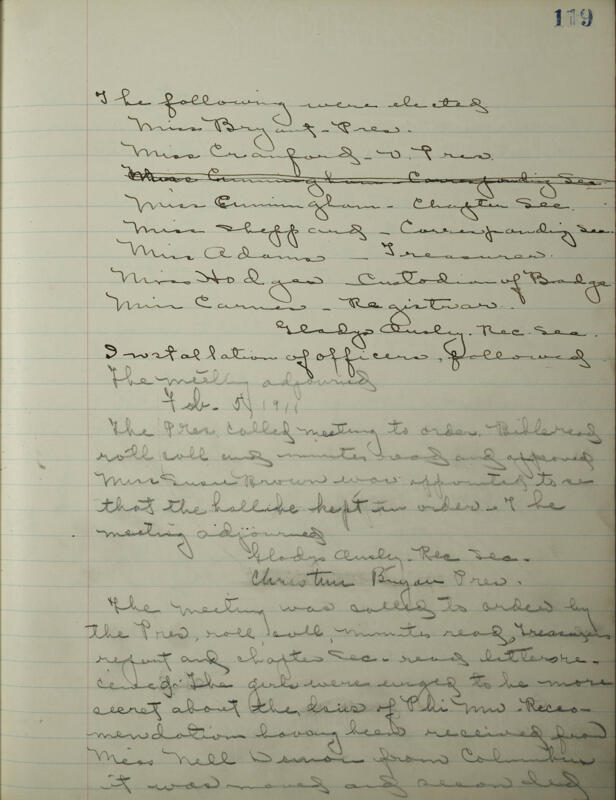 119
The following were elected
Miss Bryant - Pres.
Miss Cranford - V. Pres
Miss Cunningham - Corresponding Sec.
Miss Cunningham - Chapter Sec.
Miss Sheppard - Corresponding Sec.
Miss Adams - Treasurer.
Miss Hodges - Custodian of Badge
Miss Carnes - Registrar.
Gladys Ansley. Rec. Sec.
Installation of officers, followed
The meeting adjourned
Feb. 5, 1911
The Pres called meeting to order. Bible read
roll call and minutes read and approved
Miss Susie Brown was appointed to se
that the hall be kept in order. The
meeting adjourned
Gladys Ansley. Rec Sec.
Christine Bryan Pres.
The meeting was called to order by
the Pres, roll call, minutes read, Treasurers
report and chapter Sec. read letters re-
cieved. The girls were urged to be more
secret about the of Phi Mu. Recom-
mendation having been received from
Miss Nell from Columbus
it was moved and seconded